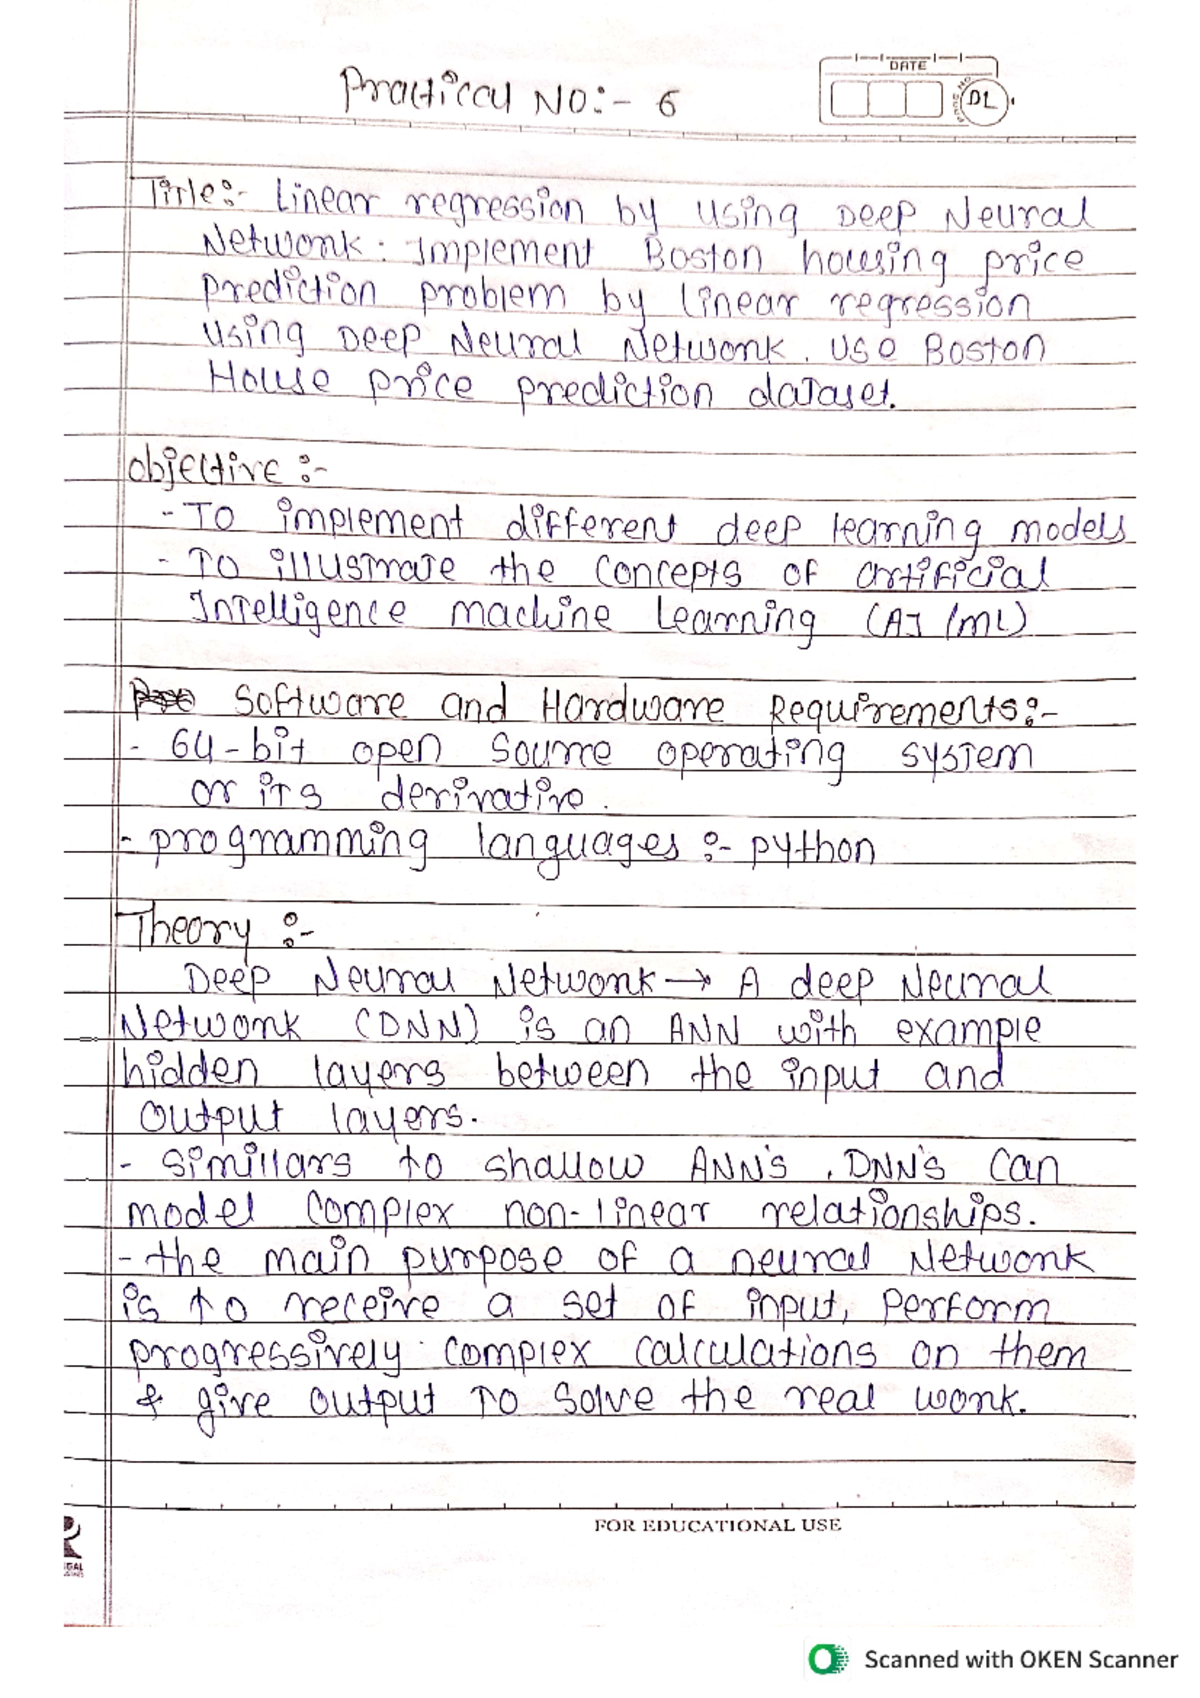 Practical NO:- 6
DATE
DL
Title:- Linear regression by using Deep Neural
Network: Implement Boston housing price
prediction problem by linear regression
using Deep Neural Network. Use Boston
House price prediction dataset.
objective :-
- To implement different deep learning models
- To illustrate the concepts of artificial
Intelligence machine Learning (AI/ML)
Software and Hardware Requirements:-
- 64-bit open source operating system
or its derivative.
- programming languages :- python
Theory :-
Deep Neural Network → A deep Neural
Network (DNN) is an ANN with example
hidden layers between the input and
output layers.
- simillars to shallow ANN's, DNN's can
model complex non-linear relationships.
- the main purpose of a neural Network
is to receive a set of input, perform
progressively complex calculations on them
& give output to solve the real work.
FOR EDUCATIONAL USE
Scanned with OKEN Scanner